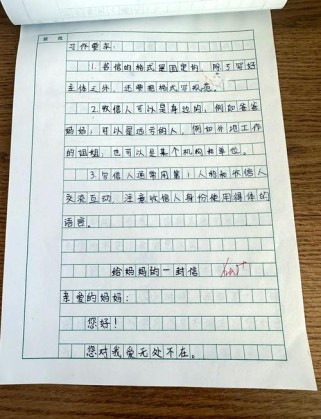 习作要求:
1.书信的格式是固定的,除了写好
主体之外,还要用格式写规范。
2.收信人可以是身边的,例如爸爸
妈妈;可以是远方的人,例如外地工作
的姐姐;也可以是某个机构和单位。
3.写信人通常用第1人称和收信人
交流互动,注意收信人身份使用得体的
语言。
给妈妈的一封信
亲爱的妈妈:
您好!
您对我爱无处不在。